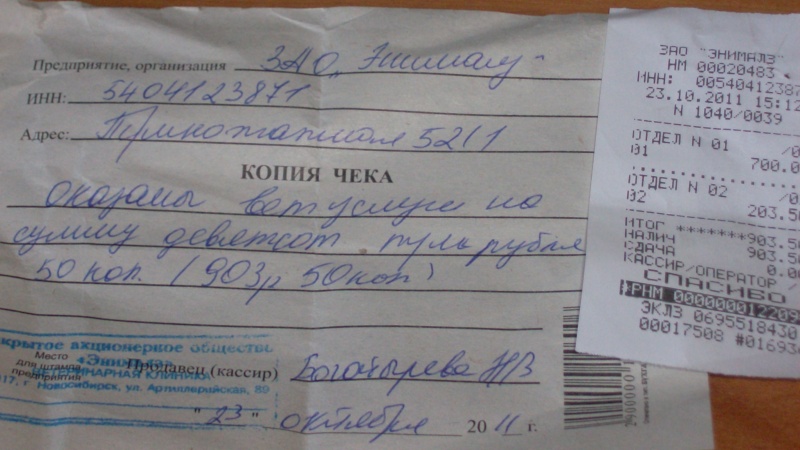 Предприятие, организация ЗАО „Энималз"
ИНН: 5404123871
Адрес: 52/1
КОПИЯ ЧЕКА
оказаны ветуслуги на
сумму девятсот рубля
50 коп. (903р 50коп)
крытое акционерное общество
«Энималз»
ВЕТЕРИНАРНАЯ КЛИНИКА
017, г. Новосибирск, ул. Артиллерийская, 80
Место
для штампа
предприятия
Продавец (кассир) Богатырева НВ
"23" октября 2011 г.
ЗАО "ЭНИМАЛЗ"
НМ 00020483
ИНН: 00540412387
23.10.2011 15:12
N 1040/0039
ОТДЕЛ N 01 /0
01 700.0
ОТДЕЛ N 02 /0
02 203.50
ИТОГ *******903.50
НАЛИЧ 903.50
СДАЧА 0.00
КАССИР/ОПЕРАТОР /
СПАСИБО
РНМ 000000012209
ЭКЛЗ 0695518430
00017508 #01693